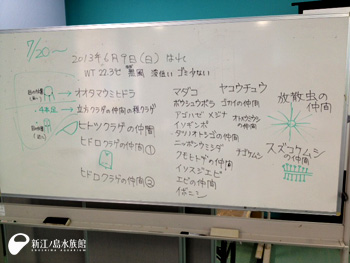 7/20〜
2013年6月9日(日) はれ
WT 22.3℃
オオタマウミヒドラ
立方クラゲの仲間の稚クラゲ
ヒトツクラゲの仲間
ヒドロクラゲの仲間①
ヒドロクラゲの仲間②
マダコ
ヤコウチュウ
ボウシュウボラ
ゴカイの仲間
アゴハゼ
メジナ
イソギンポ
タツノオトシゴの仲間
ニッポンウミシダ
クモヒトデの仲間
イソスジエビ
エビの仲間
イボニシ
放散虫の
仲間
スズコケムシ
の仲間
新江ノ島水族館